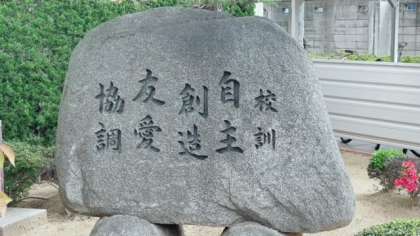 校訓
自主
創造
友愛
協調